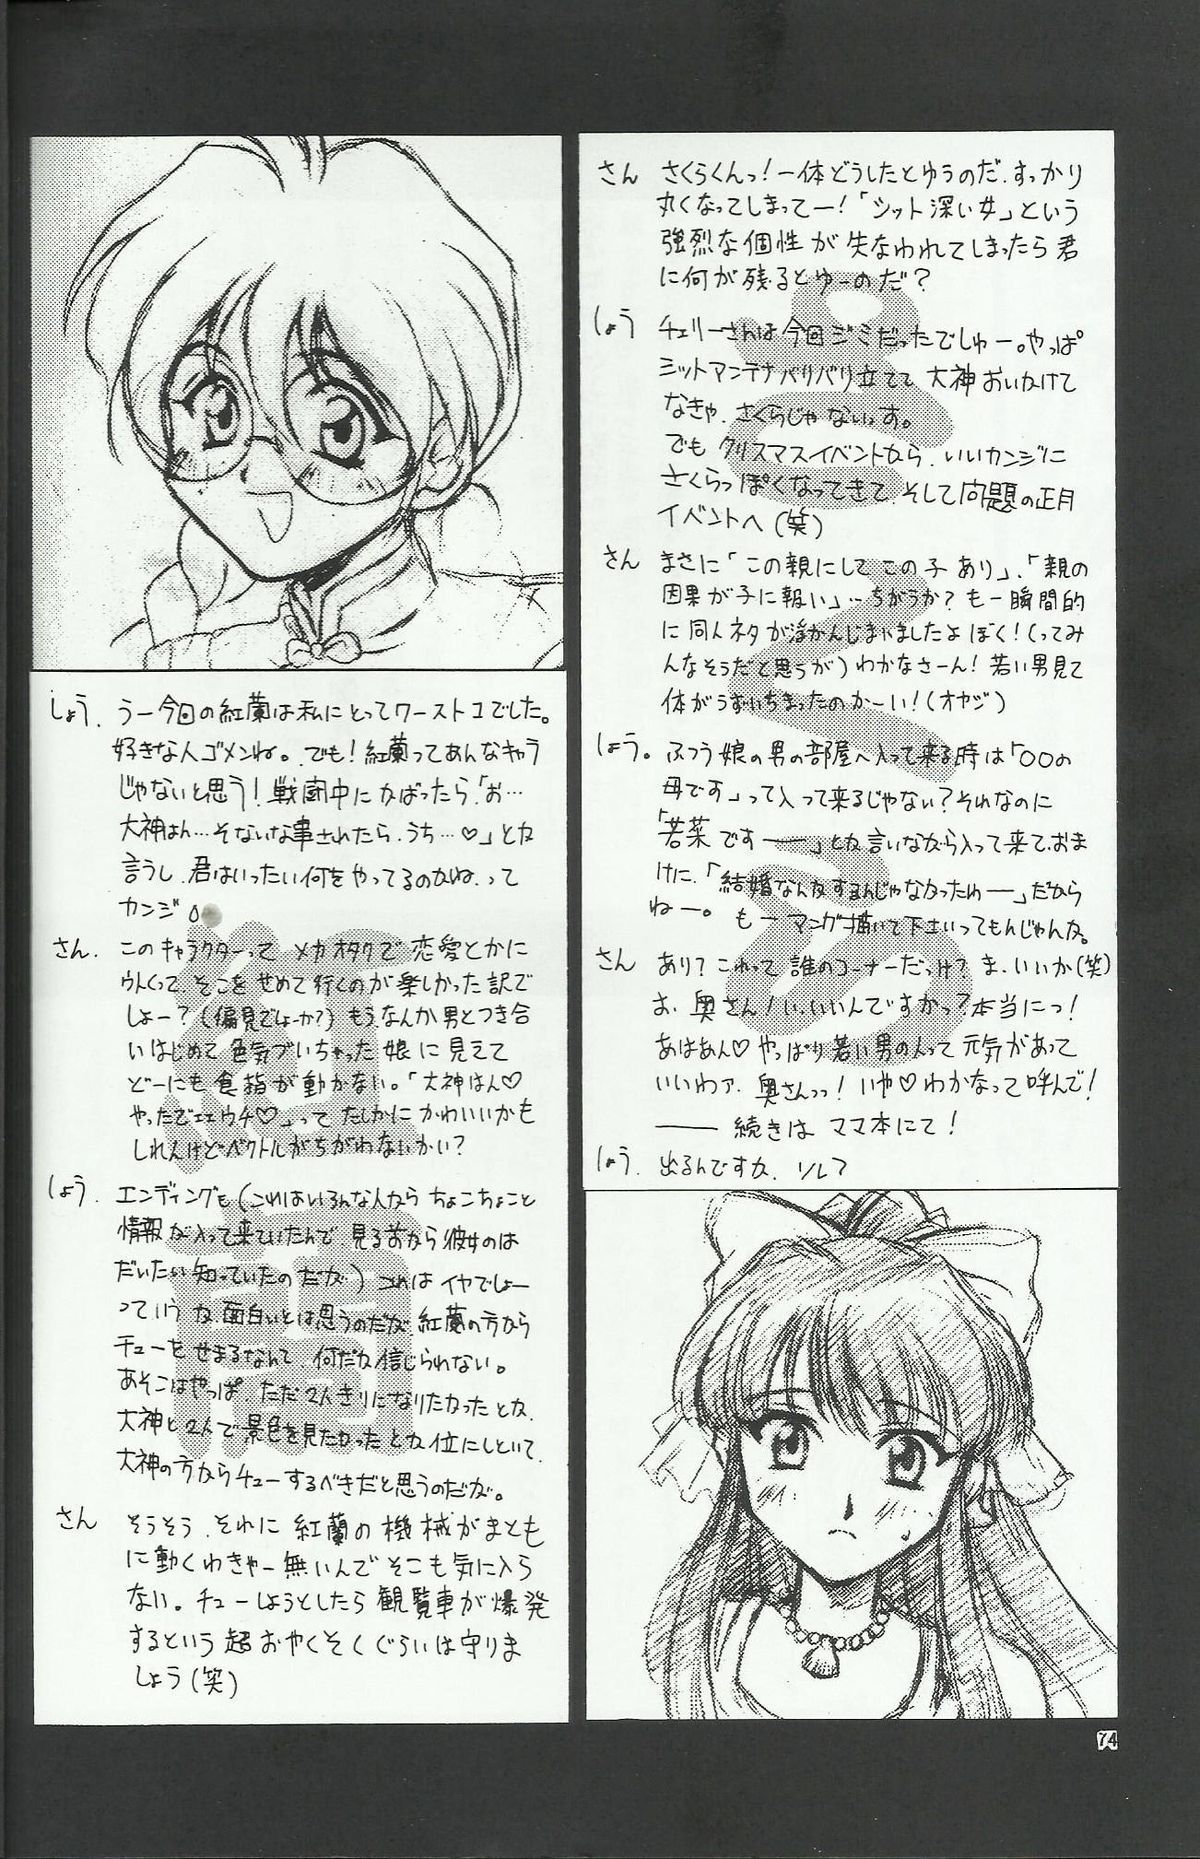 さん さくらくんっ！一体どうしたとゆうのだ.すっかり
丸くなってしまってー！「シット深い女」という
強烈な個性が失なわれてしまったら君
に何が残るとゆーのだ？
しょう チェリーさんは今回ジミだったでしゅー。やっぱ
シットアンテナバリバリ立てて大神おいかけて
なきゃ.さくらじゃないっす。
でもクリスマスイベントから.いいカンジに
さくらっぽくなってきて.そして問題の正月
イベントへ(笑)
さん まさに「この親にしてこの子あり」.「親の
因果が子に報い」…ちがうか？もー瞬間的
に同人ネタが浮かんじまいましたよぼく！(ってみ
んなそうだと思うが)わかなさーん！若い男見て
体がうずいちまったのかーい！(オヤジ)
しょう。ふつう娘の男の部屋へ入って来る時は「○○の
母です」って入って来るじゃない？それなのに
「若菜ですー」とか言いながら入って来て.おま
けに.「結婚なんかするんじゃなかったわー」だから
ねー。もーマンガ描いて下さいってもんじゃんか。
さん あり？これって誰のコーナーだっけ？ま.いいか(笑)
お、奥さん！い、いいんですかっ？本当にっ！
あはあん♡やっぱり若い男の人って元気があって
いいわァ.奥さんっっ！いや♡わかなって呼んで！
――続きはママ本にて！
しょう. 出るんですか.ソレ？
しょう. うー今回の紅蘭は私にとってワースト1でした。
好きな人ゴメンね。でも！紅蘭ってあんなキャラ
じゃないと思う！戦闘中にかばったら「お…
大神はん…そないな事されたら.うち…♡」とか
言うし.君はいったい何をやってるのかね.って
カンジ。
さん. このキャラクターってメカオタクで恋愛とかに
ウトくって.そこをせめて行くのが楽しかった訳で
しょー？(偏見でしょーか？)もう.なんか男とつき合
いはじめて色気づいちゃった娘に見えて
どーにも食指が動かない。「大神はん♡
やったでェェウチ♡」ってたしかにかわいいかも
しれんけどベクトルがちがわないかい？
しょう. エンディングも(これはいろんな人からちょこちょこと
情報が入って来ていたんで.見る前から彼女のは
だいたい知っていたのだが)これはイヤでしょー
っていうか.面白いとは思うのだが紅蘭の方から
チューをせまるなんて.何だか信じられない。
あそこはやっぱ.ただ2人きりになりたかったとか.
大神と2人で景色を見たかったとか位にしといて.
大神の方からチューするべきだと思うのだが。
さん そうそう.それに紅蘭の機械がまとも
に動くわきゃー無いんでそこも気に入ら
ない。チューしようとしたら観覧車が爆発
するという超おやくそくぐらいは守りま
しょう(笑)
74